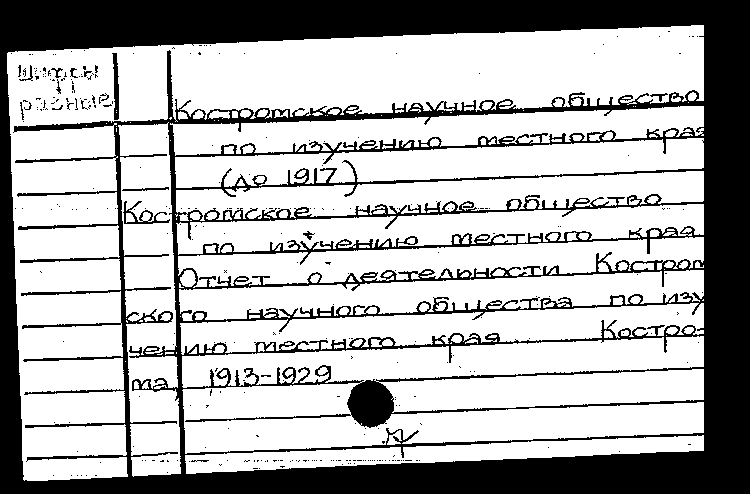 Шифры
разные
Костромское научное общество
по изучению местного края
(до 1917)
Костромское научное общество
по изучению местного края
Отчет о деятельности Костром
ского научного общества по изу
чению местного края Костро-
ма, 1913-1929